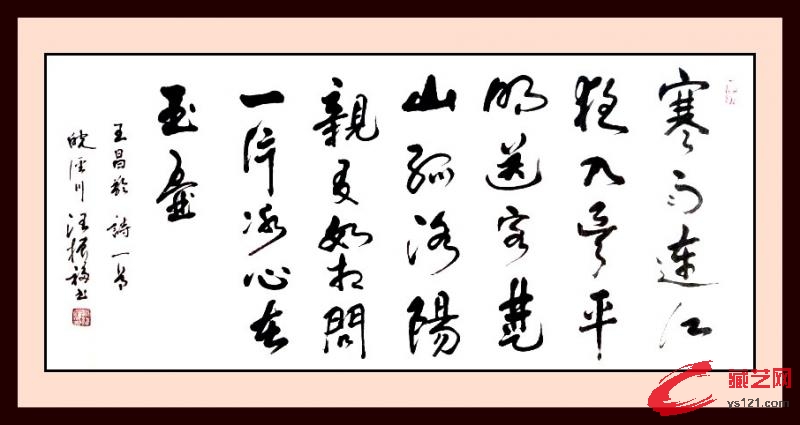 寒雨連江
夜入吳平
明送客楚
山孤洛陽
親友如相問
一片冰心在
玉壺
王昌齡 詩一首
皖涇川 汪振福书
藏艺网
ys121.com